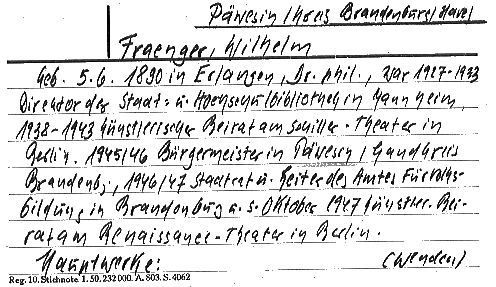 Päwesin / Kreis Brandenburg / Havel
Fraenger, Wilhelm
Geb. 5.6. 1890 in Erlangen, Dr. phil., war 1927-1933
Direktor der Stadt- u. Hochschulbibliothek in Mannheim,
1938-1943 künstlerischer Beirat am Schiller-Theater in
Berlin. 1945/46 Bürgermeister in Päwesin / Landkreis
Brandenbg., 1946/47 Stadtrat u. Leiter des Amtes für Volks-
bildung in Brandenburg u. s. Oktober 1947 künstler. Bei-
rat am Renaissance-Theater in Berlin.
Hauptwerke: (wenden)
Reg. 10. Stichnote 1. 50. 232000. A. 803. S. 4062